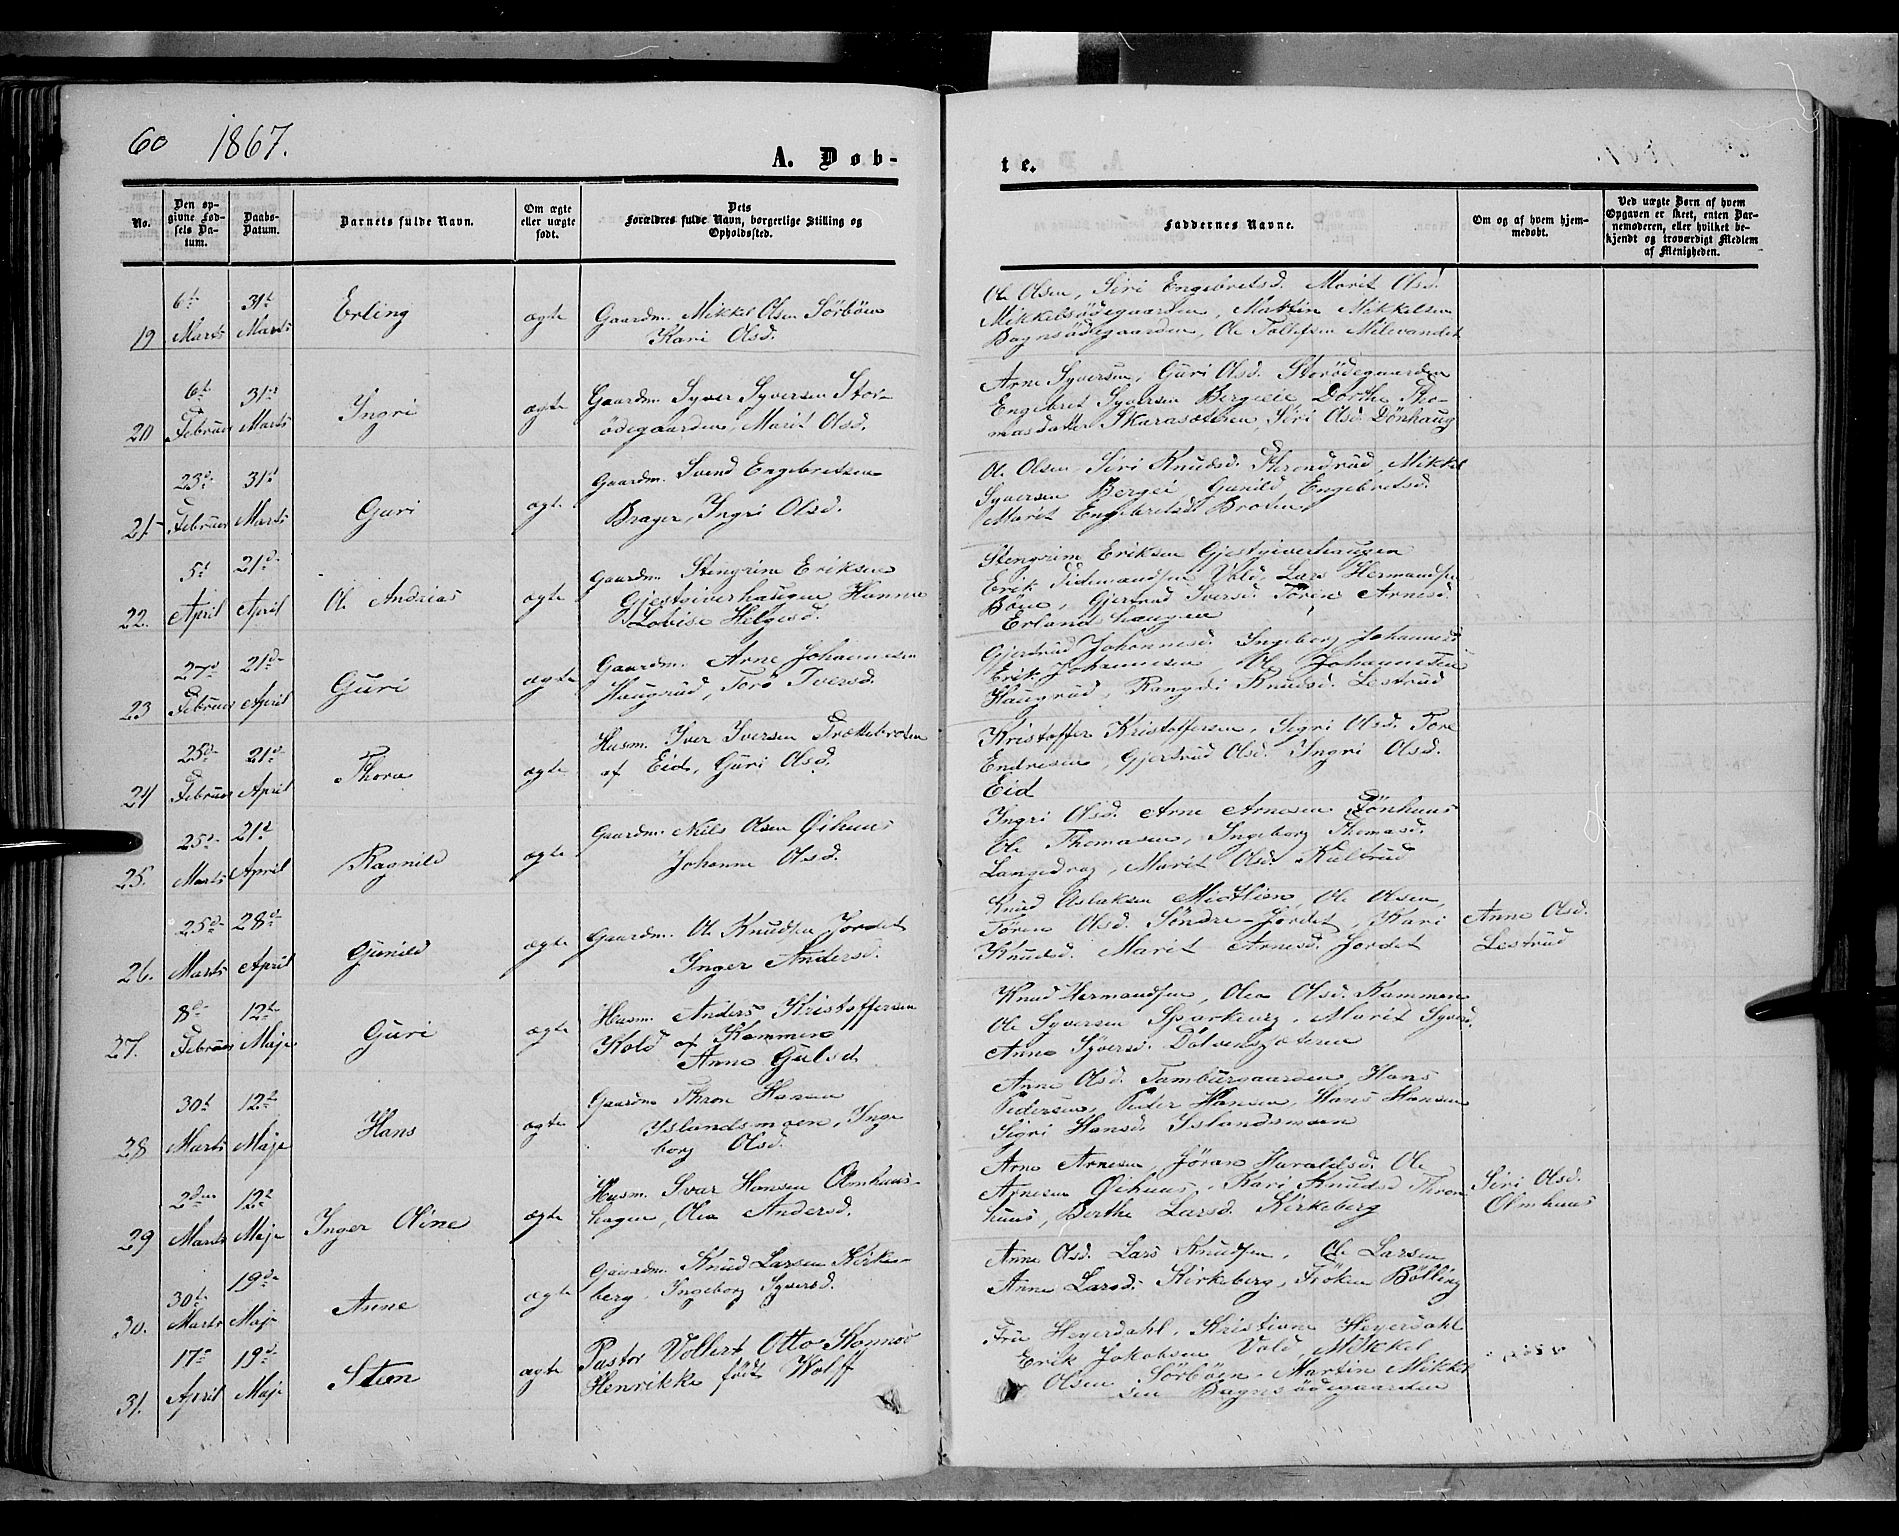 60 1867.
A. Døb-
te.
No.
Den op-
givne Fød-
sels Da-
tum.
Daabs-
Datum.
Barnets fulde Navn.
Om ægte
eller uægte
født.
Dets
Forældres fulde Navn, borgerlige Stilling og
Opholdssted.
Faddernes Navne.
Om og af hvem hjem-
medøbt.
Ved uægte Børn af hvem
Opgaven er skeet, enten Bar-
nemoderen, eller hvilket be-
kjendt og troværdigt Medlem
af Menigheden.
19 6t Marts 31t Marts Erling ægte
Gaardm. Mikkel Olsen Sörböen
Kari Olsd.
Ole Olsen, Siri Engebretsd. Marit Olsd.
Mikkelsödegaarden, Martin Mikkelsen
Bagnsödegaarden, Ole Tollefsen Milevandet
20 6t Februar 31t Marts Ingri ægte
Gaardm. Syver Syversen Stor-
ödegaarden, Marit Olsd.
Arne Syversen, Guri Olsd. Storödegaarden
Engebret Syversen Bergeie Dorthe Tho-
masdatter Skarasæteren, Siri Olsd. Dönhaug
21 23d Februar 31t Marts Guri ægte
Gaardm. Svend Engebretsen
Brager, Ingri Olsd.
Ole Olsen Siri Knudsd. Throndrud, Mikkel
Syversen Bergei, Gunild Engebretsd.
Marit Engebretsd. Broten,
22. 5t April 21d April Ole Andreas ægte
Gaardm. Stengrim Eriksen
Gjestgiverhaugen Hanna
Lovise Helgesd.
Stengrim Eriksen Gjestgiverhaugen
Erik Tidemandsen Vold, Lars Hermandsen
Böen, Gjertrud Iversd. Torin Arnesd.
Erlandhaugen
23 27d Februar 21d April Guri ægte
Gaardm. Arne Johannesen
Haugrud, Torö Iversd.
Gjertrud Johannesd. Ingeborg Johannesd.
Erik Johannesen, Ole Johannesen
Haugrud, Rangdi Knudsd. Lestrud
24 25d Februar 21d April Thora ægte
Husm. Iver Iversen Trættebroten
af Eid, Guri Olsd.
Kristoffer Kristoffersen, Sigri Olsd. Tore
Endresen, Gjertrud Olsd. Ingri Olsd.
Eid
25. 25d Marts 21d April Ragnild ægte
Gaardm. Niels Olsen Öihuus
Johanne Olsd.
Ingri Olsd. Arne Arnesen Tönhuus
Ole Thomasen, Ingeborg Thomasd.
Langedrag, Marit Olsd. Kultrud
26. 25d Marts 28d April Gunild ægte
Gaardm. Ole Knudsen Jordet
Inger Andersd.
Knud Aslaksen Midtlien, Ole Olsen,
Tören Olsd. Söndre-Jordet, Kari
Knudsd. Marit Arnesd. Jordet
Anne Olsd.
Lestrud
27. 8d Februar 12t Maje Guri ægte
Husm. Anders Kristoffersen
Kold af Kammen
Anne Gulsd
Knud Hermandsen, Olea Olsd. Kammen
Ole Syversen Sparkeng, Marit Syversd.
Anne Syversd. Dölvensæteren
28 30t Marts 12t Maje Hans ægte
Gaardm Thron Hansen
Islandsmoen, Inge
borg Olsd.
Anne Olsd. Tamburgaarden Hans
Pedersen, Peder Hansen, Hans Hansen
Sigri Hansd. Islandsmoen
29 2den Marts 12t Maje Inger Oline ægte
Husm. Ivar Hansen Olmhuus-
hagen, Olea Andersd.
Arne Arnesen, Jöran Haraldsd. Ole
Arnesen Öihuus, Kari Knudsd Thron
huus, Berthe Larsd. Kirkeberg
Siri Olsd.
Olmhuus
30. 30t Marts 19d Maje Anne ægte
Gaardm. Knud Larsen Kirke-
berg. Ingeborg Syversd.
Anne Olsd. Lars Knudsen, Ole Larsen
Anne Larsd. Kirkeberg, Fröken Bölling
31. 17 April 19d Maje Sten ægte
Pastor Vollert Otto Konnow
Henrikke født Wolff
Fru Heyerdahl, Kristiane Heyerdahl
Erik Jakobsen Vold, Mikkel
Olsen Sörböen, Martin Mikkel
sen Bagnsödegaarden